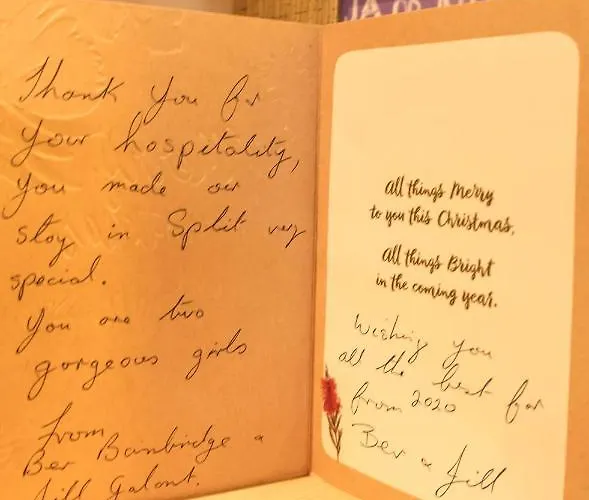 Thank you for
your hospitality,
you made our
stay in Split very
special.
You are two
gorgeous girls
from
Bev Bainbridge &
Jill Galant.
All things Merry
to you this Christmas,
All things Bright
in the coming year.
Wishing you
all the best for
from 2020
Bev & Jill